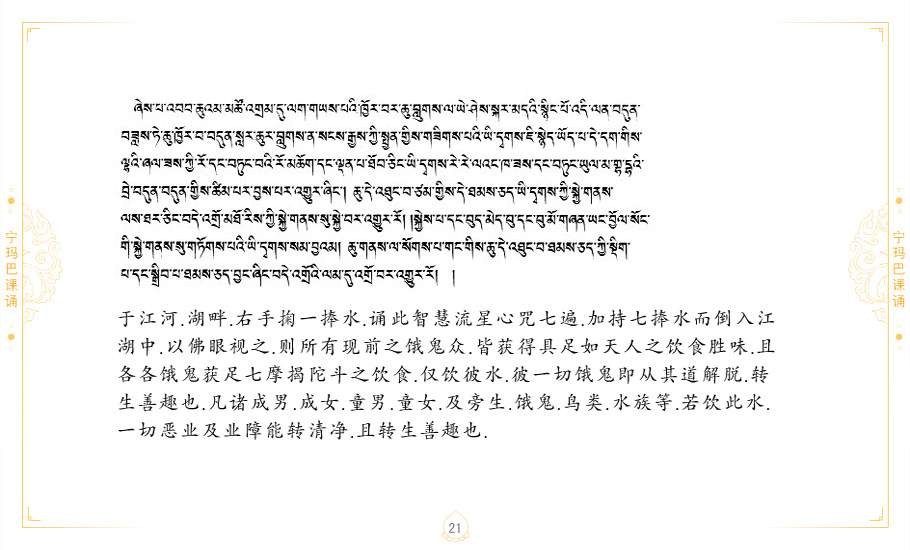 ཞེས་པ་འབབ་ཆུའམ་མཚོ་འགྲམ་དུ་ལག་གཡས་པའི་ཁྱོར་བར་ཆུ་བླུགས་ལ་ཡེ་ཤེས་སྐར་མདའི་སྙིང་པོ་འདི་ལན་བདུན་
བཟླས་ཏེ་ཆུ་ཁྱོར་བ་བདུན་སླར་ཆུར་བླུགས་ན་སངས་རྒྱས་ཀྱི་སྤྱན་གྱིས་གཟིགས་པའི་ཡི་དྭགས་ཇི་སྙེད་ཡོད་པ་དེ་དག་གིས་
ལྷའི་ཞལ་ཟས་ཀྱི་རོ་དང་བཏུང་བའི་རོ་མཆོག་དང་ལྡན་པ་ཐོབ་ཅིང་ཡི་དྭགས་རེ་རེ་ལའང་ཁ་ཟས་དང་བཏུང་ཡུལ་མ་གྷ་དྷའི་
བྲེ་བདུན་བདུན་གྱིས་ཚིམ་པར་བྱས་པར་འགྱུར་ཞིང་། ཆུ་དེ་འཐུང་བ་ཙམ་གྱིས་དེ་ཐམས་ཅད་ཡི་དྭགས་ཀྱི་སྐྱེ་གནས་
ལས་ཐར་ཅིང་བདེ་འགྲོ་མཐོ་རིས་ཀྱི་སྐྱེ་གནས་སུ་སྐྱེ་བར་འགྱུར་རོ། །སྐྱེས་པ་དང་བུད་མེད་བུ་དང་བུ་མོ་གཞན་ཡང་བྱོལ་སོང་
གི་སྐྱེ་གནས་སུ་གཏོགས་པའི་ཡི་དྭགས་སམ་བྱའམ། ཆུ་གནས་ལ་སོགས་པ་གང་གིས་ཆུ་དེ་འཐུང་བ་ཐམས་ཅད་ཀྱི་སྡིག་
པ་དང་སྒྲིབ་པ་ཐམས་ཅད་བྱང་ཞིང་བདེ་འགྲོའི་ལམ་དུ་འགྲོ་བར་འགྱུར་རོ། །
于江河.湖畔.右手掬一捧水.诵此智慧流星心咒七遍.加持七捧水而倒入江
湖中.以佛眼视之.则所有现前之饿鬼众.皆获得具足如天人之饮食胜味.且
各各饿鬼获足七摩揭陀斗之饮食.仅饮彼水.彼一切饿鬼即从其道解脱.转
生善趣也.凡诸成男.成女.童男.童女.及旁生.饿鬼.鸟类.水族等.若饮此水.
一切恶业及业障能转清净.且转生善趣也.
宁玛巴课诵
宁玛巴课诵
21